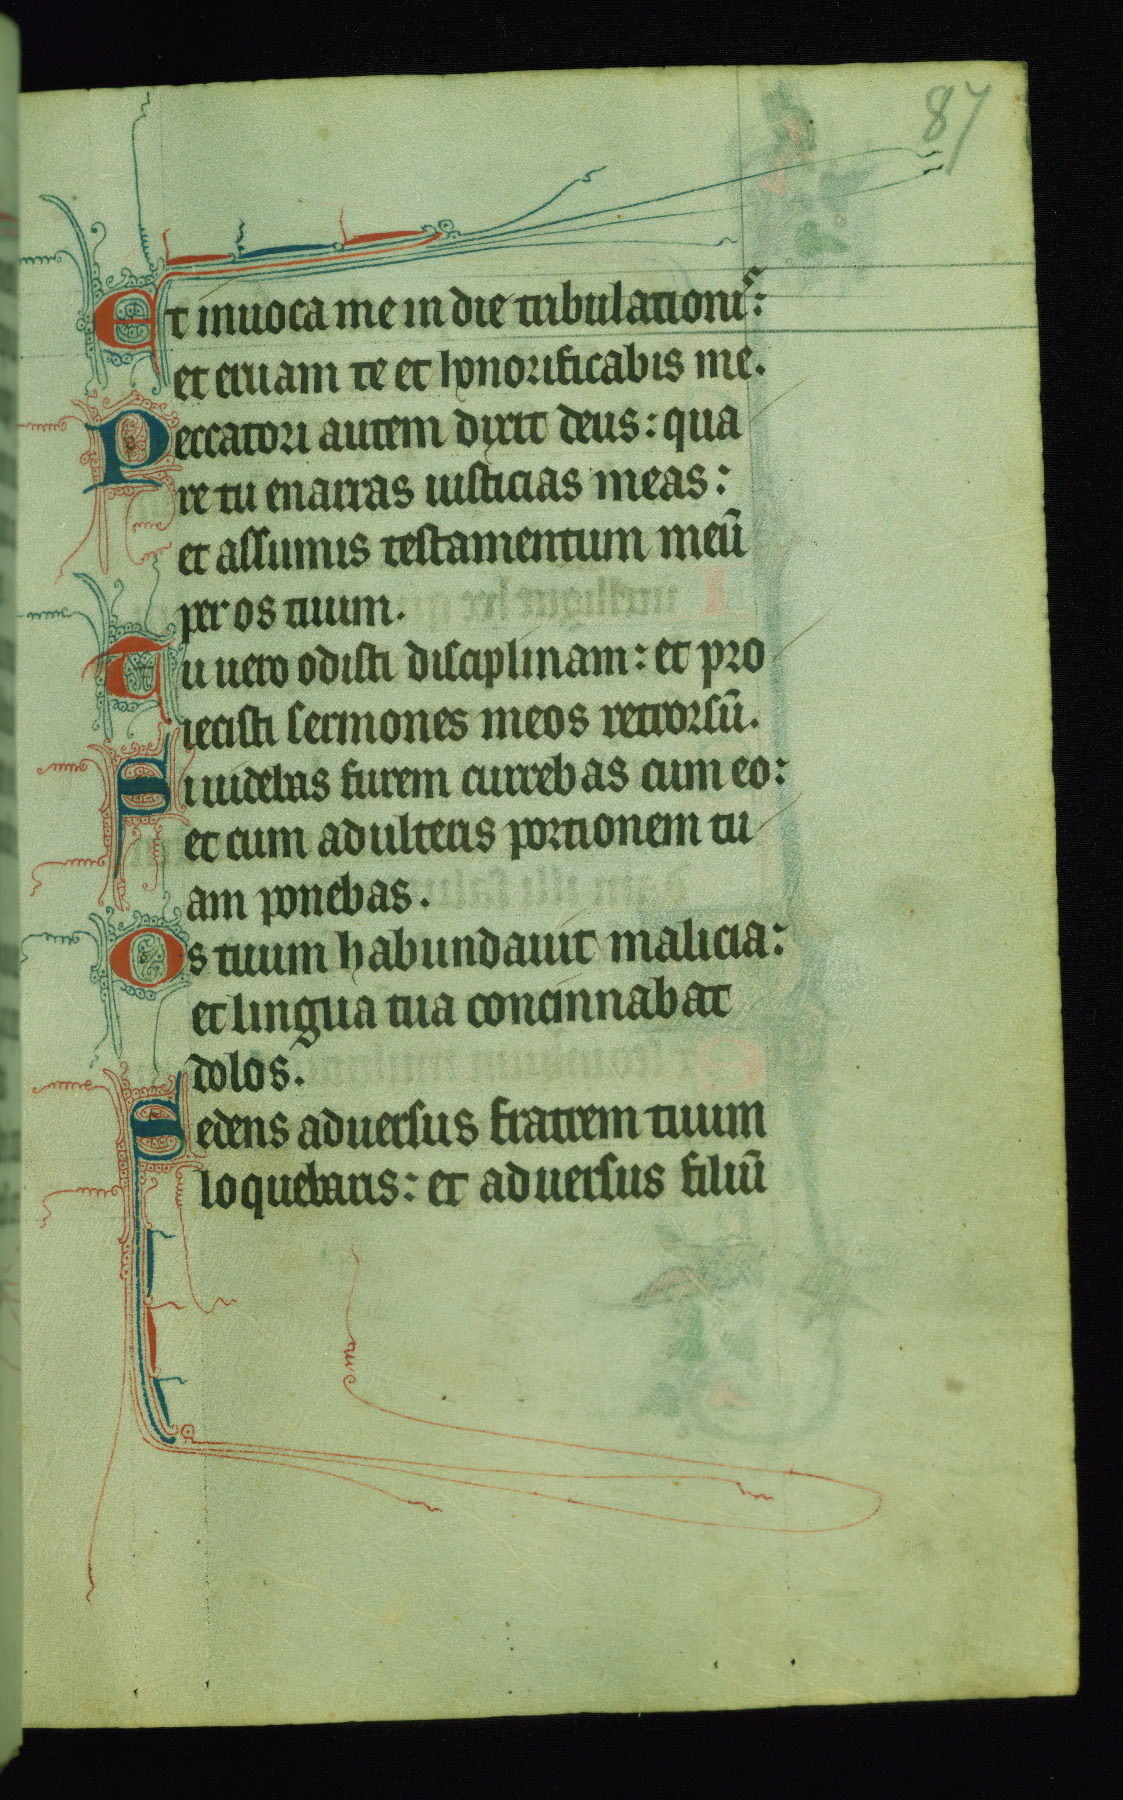 87
Et inuoca me in die tribulationis:
et eruam te et honorificabis me.
Peccatori autem dixit deus: qua
re tu enarras iusticias meas:
et assumis testamentum meū
per os tuum.
Tu uero odisti disciplinam: et pro
iecisti sermones meos retrorsū.
Si uidebas furem currebas cum eo:
et cum adulteris portionem tu
am ponebas.
Os tuum habundauit malicia:
et lingua tua concinnabat
dolos.
Sedens aduersus fratrem tuum
loquebaris: et aduersus filiū